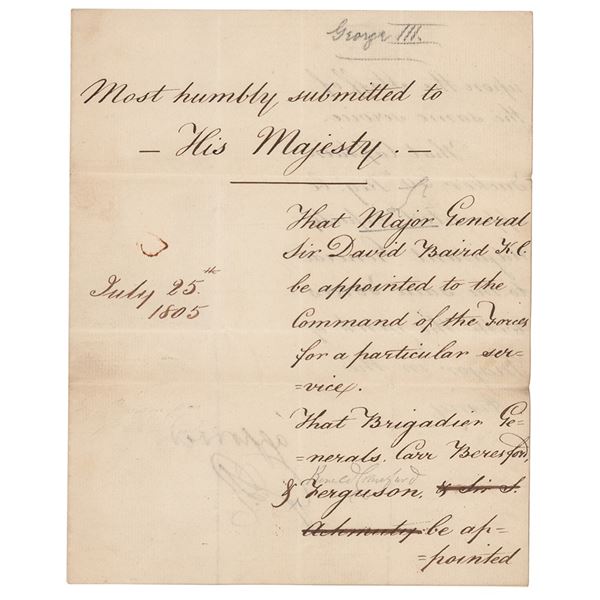 George III.
Most humbly submitted to
— His Majesty. —
July 25.th
1805
That Major General
Sir David Baird K.C.
be appointed to the
Command of the Forces
for a particular ser-
=vice.
That Brigadier Ge-
=nerals. Carr Beresford,
& Ferguson, & Sir S.
Achmuty be ap-
=pointed